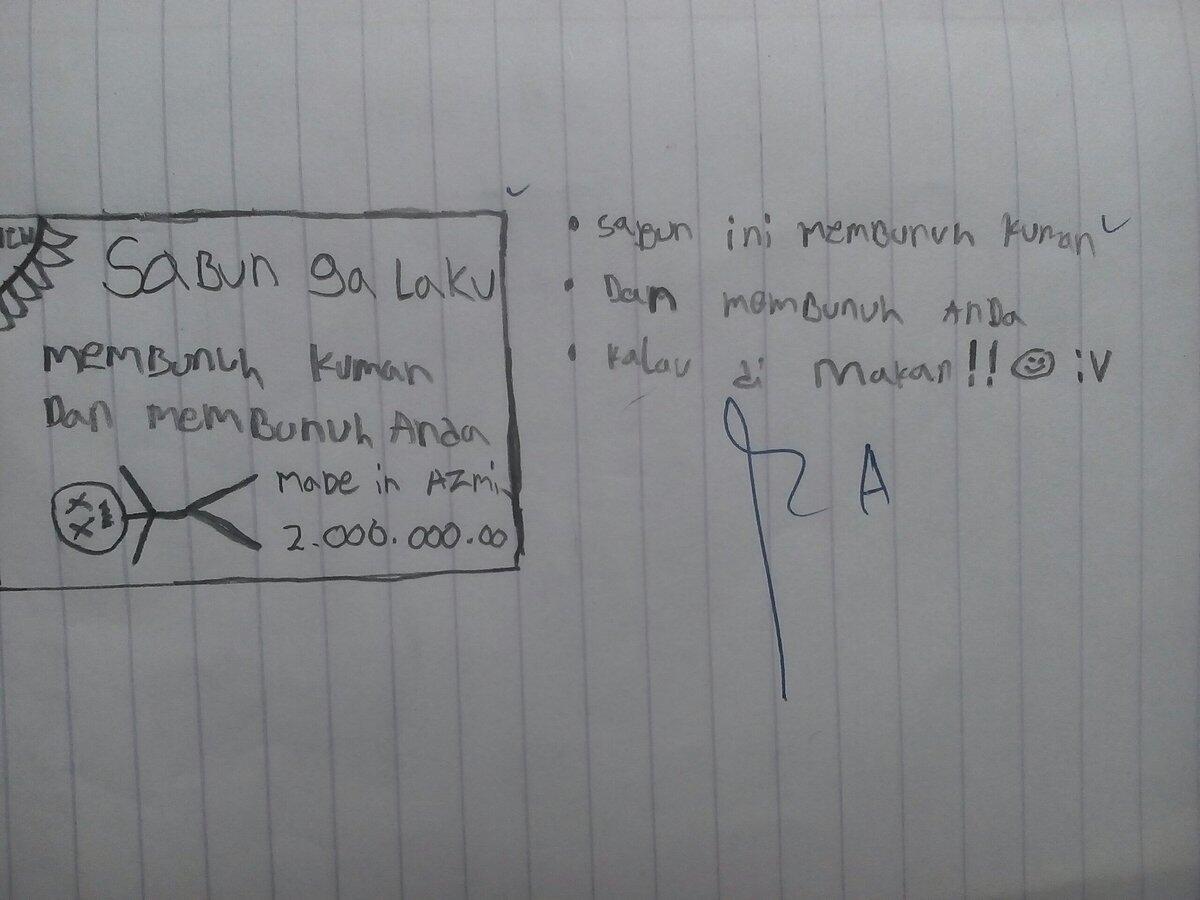 NEW
SABUN ga LAKU
MEMBUNUH KUMAN
DAN MEMBUNUH ANDA
MADE in AZMi
2.000.000.00
• SABUN ini MEMBUNUH KUMAN
• DAN MEMBUNUH ANDA
• KALAU di MAKAN!! ☺ :V
A